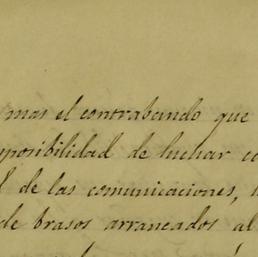 mas el contrabando que
posibilidad de luchar
de las comunicaciones,
de brasos arrancados al